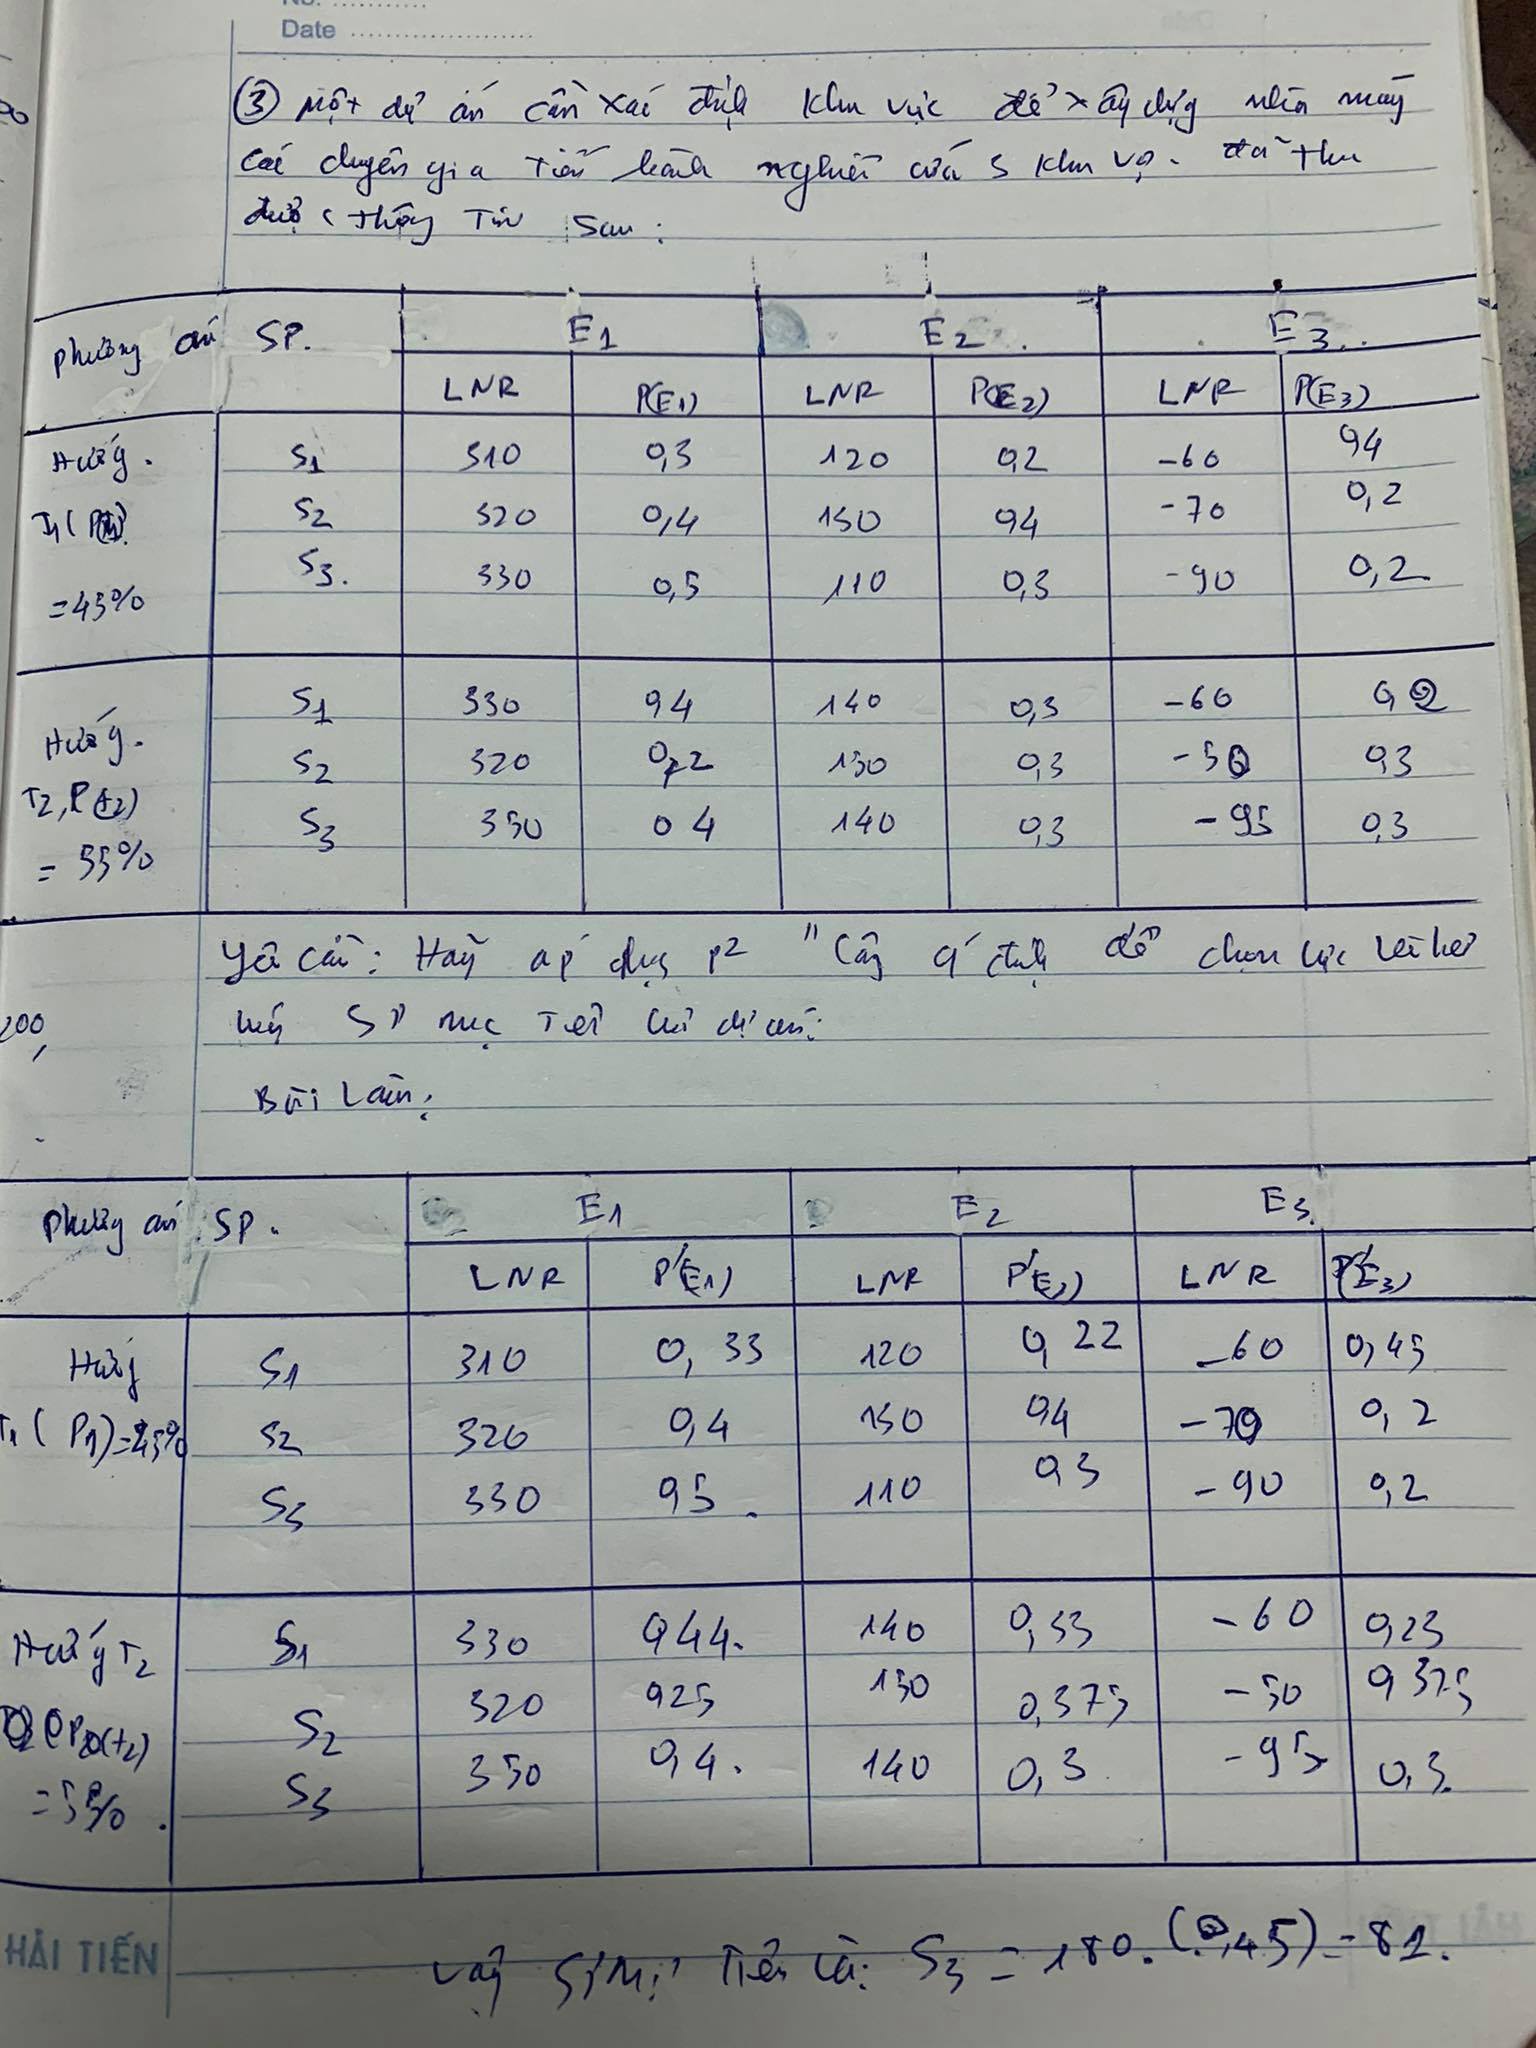 No. ............
Date ......................
③ Một dự án cần xác định khu vực để xây dựng nhà máy
các chuyên gia tiến hành nghiên cứu 3 khu vự. đã thu
được thông tin sau:
Phương án SP. E1 E2. E3..
LNR P(E1) LNR P(E2) LNR P(E3)
Hướng. S1 310 0,3 120 0,2 -60 0,4
T1(P(t1) S2 320 0,4 130 0,4 -70 0,2
=45% S3. 330 0,5 110 0,3 -90 0,2
Hướng. S1 330 0,4 140 0,3 -60 0,2
T2, P(t2) S2 320 0,2 130 0,3 -50 0,3
= 55% S3 350 0 4 140 0,3 -95 0,3
Yêu cầu: Hãy áp dụng p² "Cây q định để chọn lực
SP mục tiêu dự án:
200,
Bài Làm:
Phương án SP. E1 E2 E3.
LNR P'(E1) LNR P'(E2) LNR P'(E3)
Hướng S1 310 0,33 120 0,22 -60 0,45
T1(P1)=45% S2 320 0,4 130 0,4 -70 0,2
S3 330 0,5. 110 0,3 -90 0,2
Hướng T2 S1 330 0,44. 140 0,33 -60 0,23
P(t2) S2 320 0,25 130 0,375 -50 0,375
=55%. S3 350 0,4. 140 0,3 -95 0,3.
HẢI TIẾN
Vậy SP Mụ Tiêu là: S3 = 180.(0,45)=81.